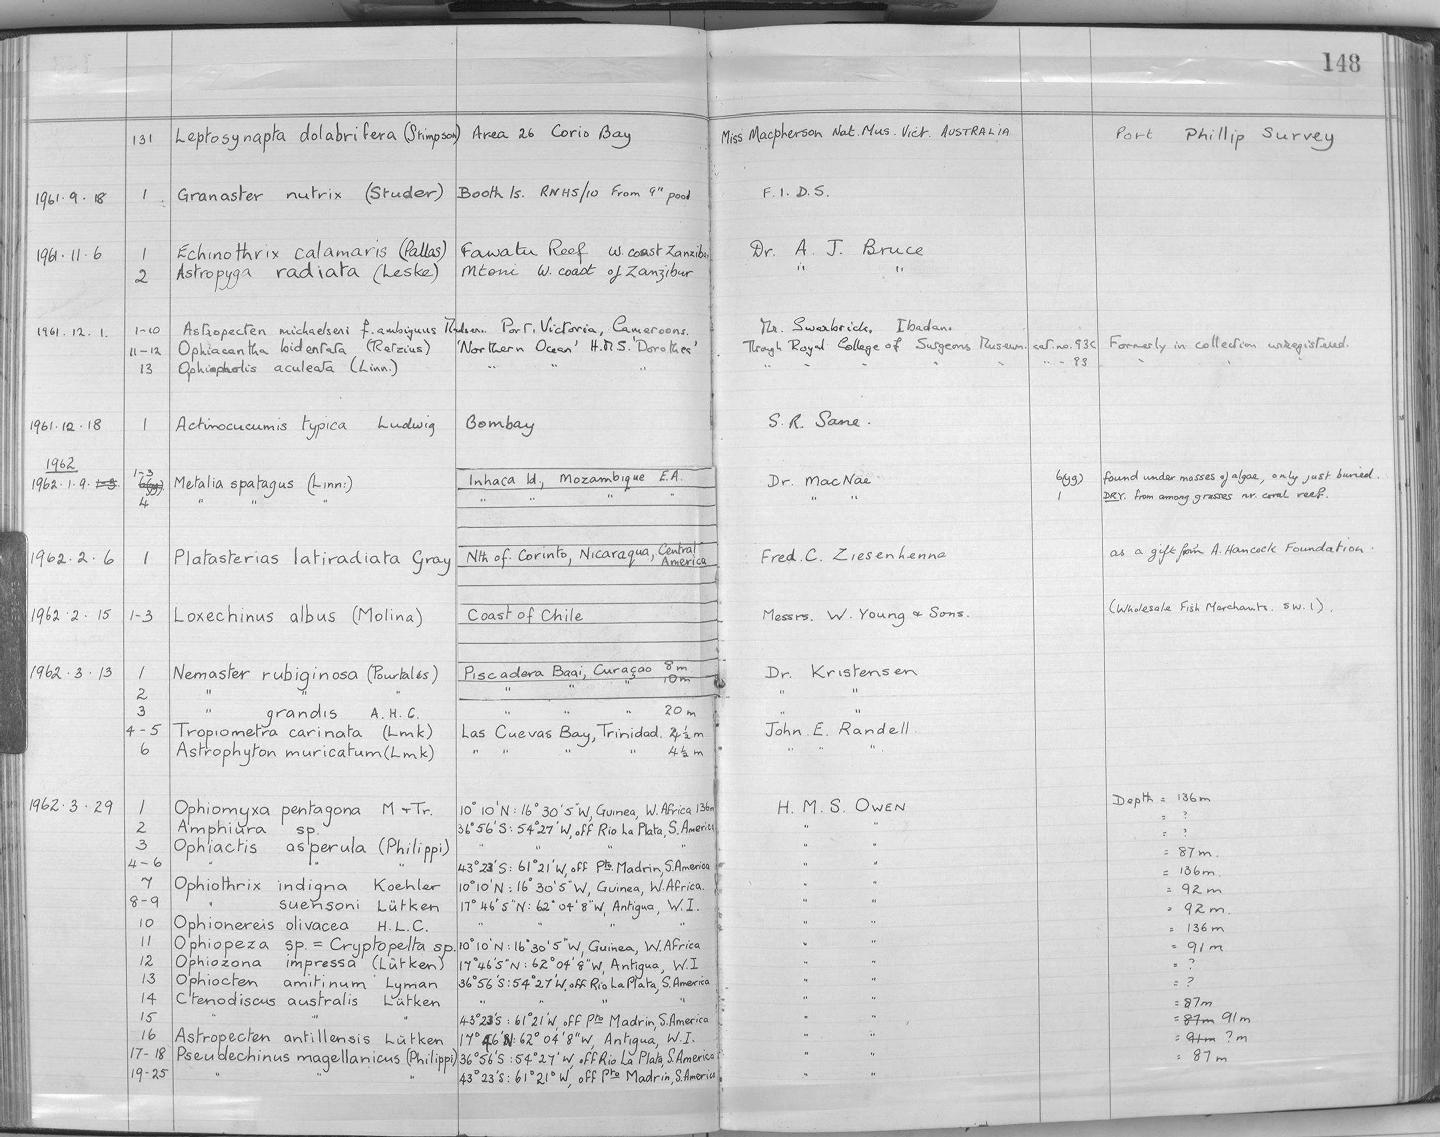 148
131 Leptosynapta dolabrifera (Stimpson) Area 26 Corio Bay Miss Macpherson Nat. Mus. Vict. AUSTRALIA Port Phillip Survey
1961·9·18 1 Granaster nutrix (Studer) Booth Is. RNHS/10 From 9" pool F.I.D.S.
1961·11·6 1 Echinothrix calamaris (Pallas) Fawatu Reef W. coast Zanzibar Dr. A. J. Bruce
2 Astropyga radiata (Leske) Mtoni W. coast of Zanzibar " "
1961.12.1. 1-10 Astropecten michaelseni f. ambiguus Port Victoria, Cameroons. Mr. Swarbrick, Ibadan.
11-12 Ophiacantha bidentata (Retzius) 'Northern Ocean' H.M.S. 'Dorothea' Through Royal College of Surgeons Museum. cat. no. 93c Formerly in collection unregistered.
13 Ophiopholis aculeata (Linn.) " " " " " " " " " - 93 " " "
1961·12·18 1 Actinocucumis typica Ludwig Bombay S. R. Sane.
1962
1962·1·9· 1-3 Metalia spatagus (Linn:) Inhaca Id., Mozambique E.A. Dr. MacNae 6(yg) found under masses of algae, only just buried.
4 " " " " " " " " " 1 DRY. from among grasses nr. coral reef.
1962·2·6 1 Platasterias latiradiata Gray Nth of. Corinto, Nicaragua, Central America Fred. C. Ziesenhenne as a gift from A. Hancock Foundation.
1962·2·15 1-3 Loxechinus albus (Molina) Coast of Chile Messrs. W. Young & Sons. (Wholesale Fish Merchants. SW.1).
1962·3·13 1 Nemaster rubiginosa (Pourtalés) Piscadera Baai, Curaçao 8m Dr. Kristensen
2 " " " " " 10m " "
3 " grandis A.H.C. " " " 20m " "
4-5 Tropiometra carinata (Lmk) Las Cuevas Bay, Trinidad. 4½m John E. Randell
6 Astrophyton muricatum (Lmk) " " " " 4½m " " "
1962·3·29 1 Ophiomyxa pentagona M & Tr. 10°10'N: 16°30'5"W, Guinea, W. Africa 136m H. M. S. OWEN Depth = 136m
2 Amphiura sp. 36°56'S: 54°27'W, off Rio La Plata, S. America " " = ?
3 Ophiactis asperula (Philippi) " " " " " " = ?
4-6 " " " 43°23'S: 61°21'W, off Pto Madrin, S. America " " = 87m.
7 Ophiothrix indigna Koehler 10°10'N: 16°30'5"W, Guinea, W. Africa. " " = 136m.
8-9 " suensoni Lütken 17°46'5"N: 62°04'8"W, Antigua, W.I. " " = 92m
10 Ophionereis olivacea H.L.C. " " " " " " = 92m.
11 Ophiopeza sp. = Cryptopelta sp. 10°10'N: 16°30'5"W, Guinea, W. Africa " " = 136m
12 Ophiozona impressa (Lütken) 17°46'5"N: 62°04'8"W, Antigua, W.I " " = 91m
13 Ophiocten amitinum Lyman 36°56'S: 54°27'W, off Rio La Plata, S. America " " = ?
14 Ctenodiscus australis Lütken " " " " " " = ?
15 " " " 43°23'S: 61°21'W, off Pto Madrin, S. America " " = 87m
16 Astropecten antillensis Lütken 17°46'N: 62°04'8"W, Antigua, W.I. " " = 87m 91m
17-18 Pseudechinus magellanicus (Philippi) 36°56'S: 54°27'W, off Rio La Plata, S. America " " = 91m ?m
19-25 " " " 43°23'S: 61°21°W, off Pto Madrin, S. America " " = 87m